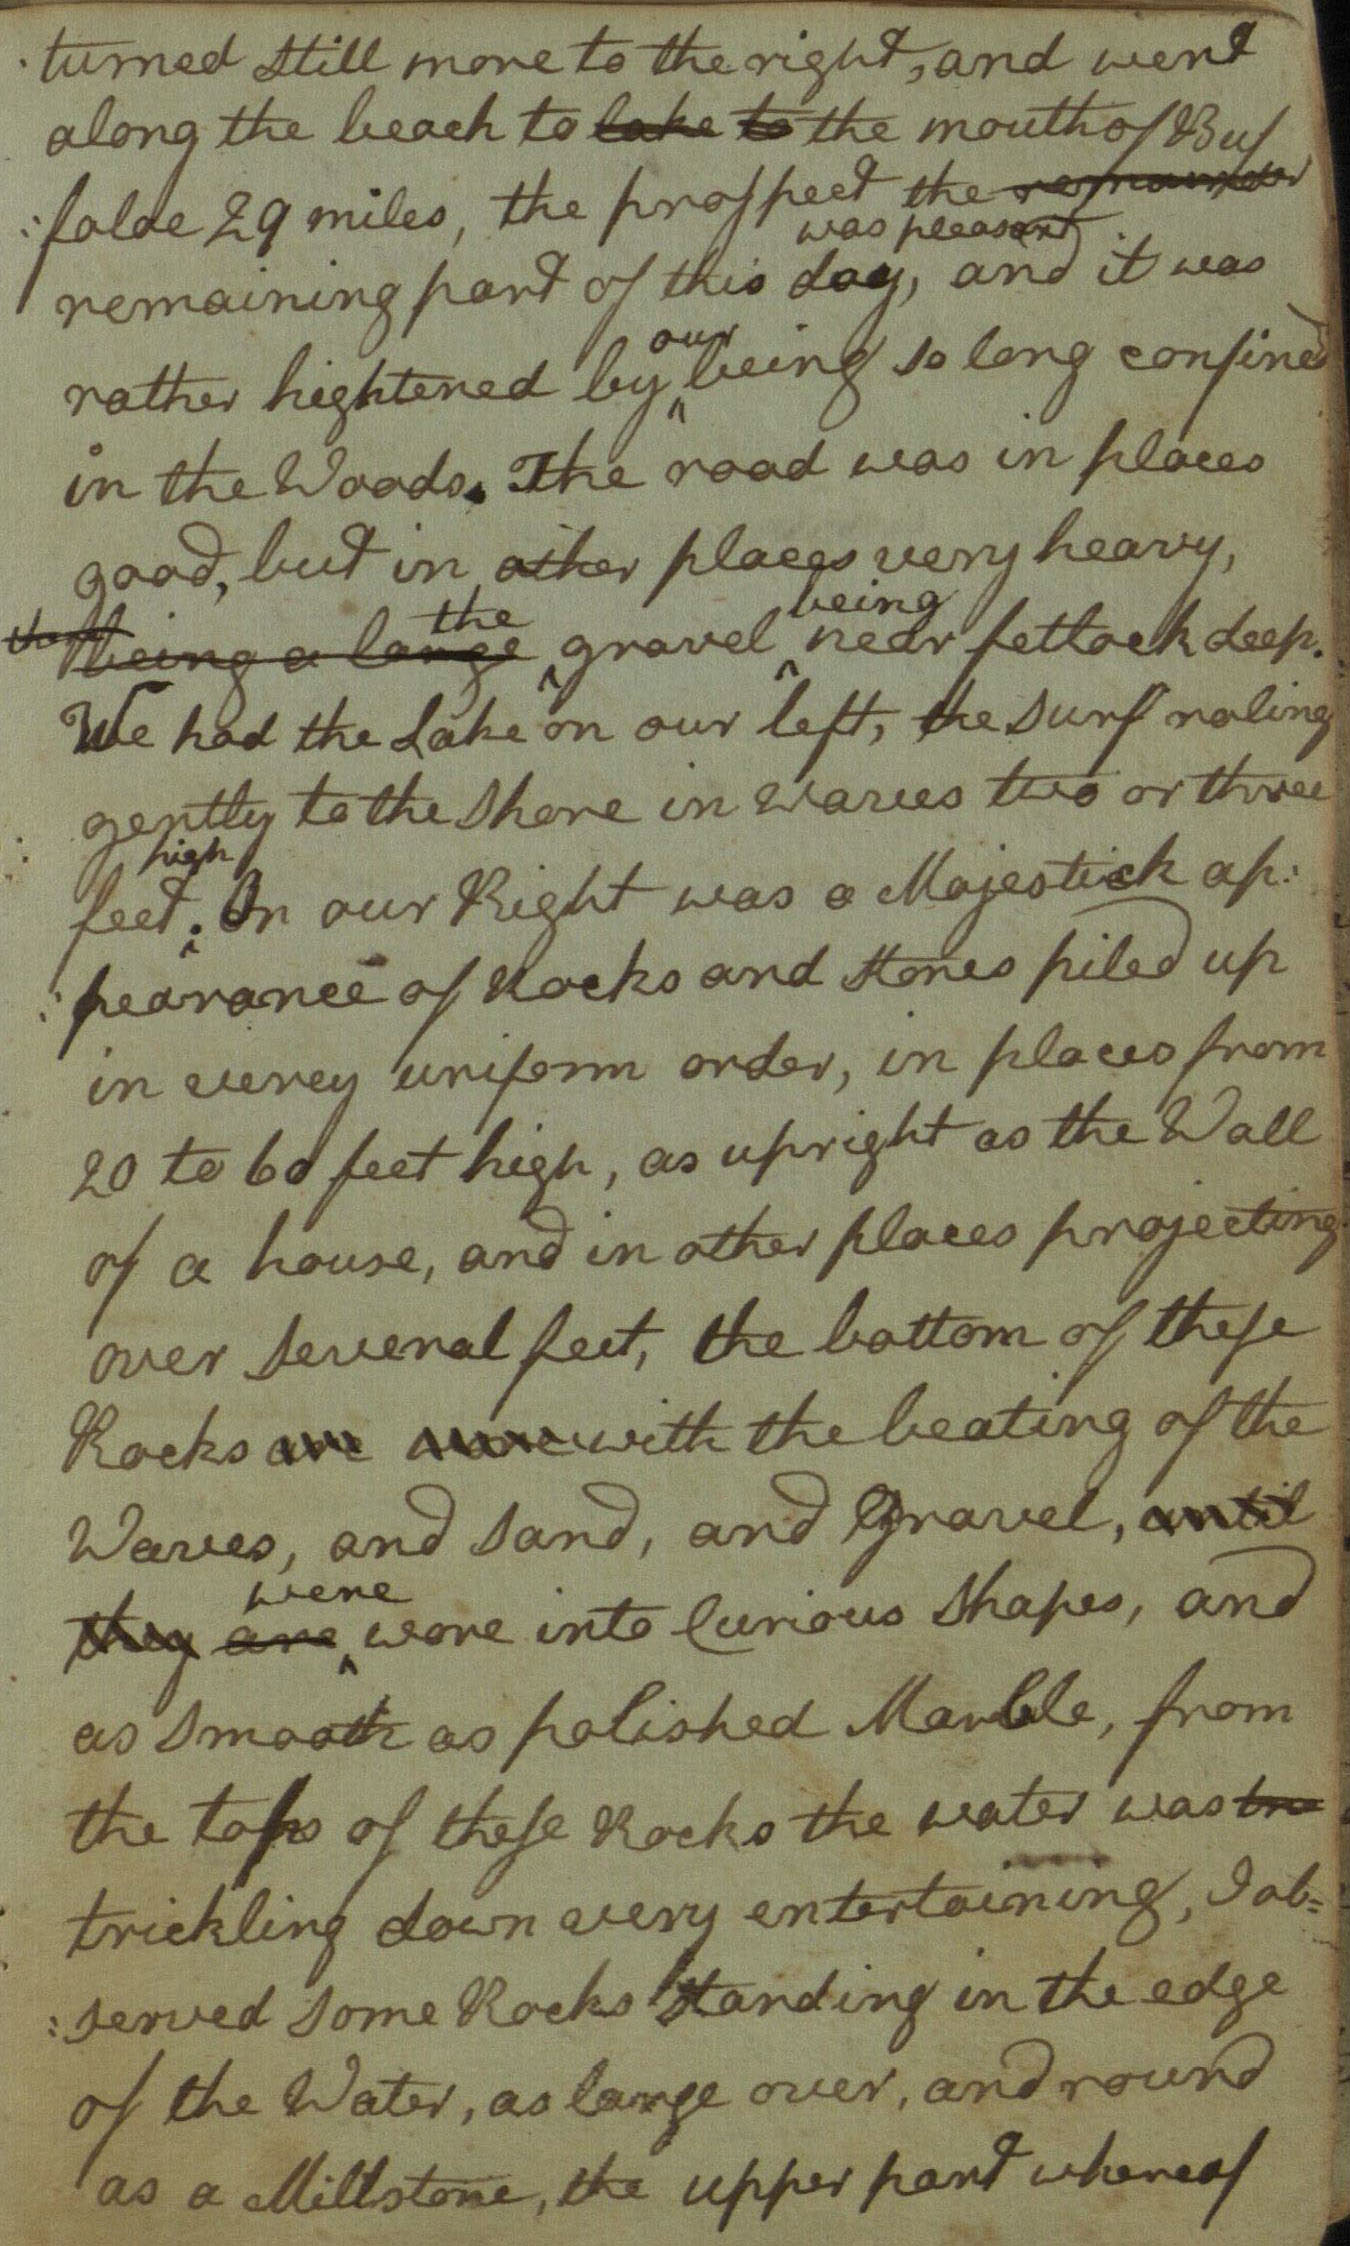 turned still more to the right, and went
along the beach to lake to the mouth of Buf
:faloe 29 miles, the prospect the remainder
was pleasant
remaining part of this day, and it was
our
rather hightened by being so long confined
in the Woods. The road was in places
good, but in other places very heavy,
the being
being a large gravel near fetlock deep.
We had the Lake on our left, the surf roling
gently to the shore in waves two or three
high
feet. On our Right was a Majestick ap:
:pearance of Rocks and stones piled up
in verey uniform order, in places from
20 to 60 feet high, as upright as the Wall
of a house, and in other places projecting
over several feet, the bottom of these
Rocks are with the beating of the
Waves, and sand, and Gravel, until
were
they are wore into Curious shapes, and
as smooth as polished Marble, from
the tops of these Rocks the water was tre
trickling down very entertaining, I ob=
:served some Rocks standing in the edge
of the Water, as large over, and round
as a Millstone, the upper part whereof